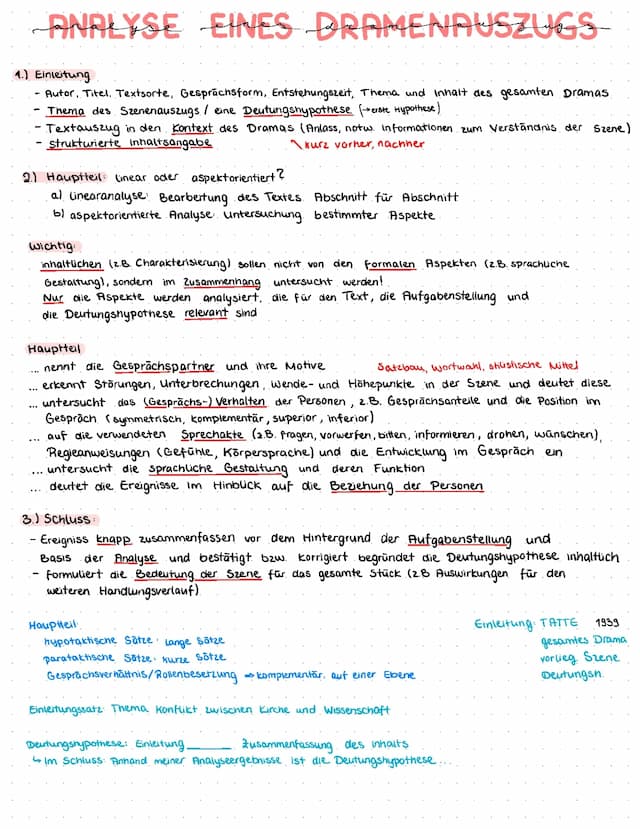 ANALYSE EINES DRAMENAUSZUGS
analyse eines dramenauszugs
1.) Einleitung
- Autor, Titel, Textsorte, Gesprächsform, Entstehungszeit, Thema und Inhalt des gesamten Dramas
- Thema des Szenenauszugs / eine Deutungshypothese (→ erste Hypothese)
- Textauszug in den Kontext des Dramas (Anlass, notw. Informationen zum Verständnis der Szene)
- strukturierte Inhaltsangabe
kurz vorher, nachher
2.) Hauptteil: linear oder aspektorientiert?
a) linearanalyse: Bearbeitung des Textes Abschnitt für Abschnitt
b) aspektorientierte Analyse: Untersuchung bestimmter Aspekte
Wichtig:
inhaltlichen (z.B. Charakterisierung) sollen nicht von den formalen Aspekten (z.B. sprachliche
Gestaltung), sondern im Zusammenhang untersucht werden!
Nur die Aspekte werden analysiert, die für den Text, die Aufgabenstellung und
die Deutungshypothese relevant sind
Hauptteil
... nennt die Gesprächspartner und ihre Motive
Satzbau, Wortwahl, stilistische Mittel
... erkennt Störungen, Unterbrechungen, Wende- und Höhepunkte in der Szene und deutet diese
... untersucht das (Gesprächs-) Verhalten der Personen, z.B. Gesprächsanteile und die Position im
Gespräch (symmetrisch, komplementär, superior, inferior)
... auf die verwendeten Sprechakte (z.B. fragen, vorwerfen, bitten, informieren, drohen, wünschen),
Regieanweisungen (Gefühle, Körpersprache) und die Entwicklung im Gespräch ein
... untersucht die sprachliche Gestaltung und deren Funktion
... deutet die Ereignisse im Hinblick auf die Beziehung der Personen
3.) Schluss:
- Ereigniss knapp zusammenfassen vor dem Hintergrund der Aufgabenstellung und
Basis der Analyse und bestätigt bzw. korrigiert begründet die Deutungshypothese inhaltlich
- formuliert die Bedeutung der Szene für das gesamte Stück (z.B Auswirkungen für den
weiteren Handlungsverlauf)
Hauptteil:
hypotaktische Sätze: lange Sätze
parataktische Sätze: kurze Sätze
Gesprächsverhältnis/Rollenbesetzung ⇒ komplementär, auf einer Ebene
Einleitung: TATTE 1939
gesamtes Drama
vorlieg. Szene
Deutungsh.
Einleitungssatz: Thema Konflikt zwischen Kirche und Wissenschaft
Deutungshypothese: Einleitung ______ Zusammenfassung des Inhalts
↳ Im Schluss: Anhand meiner Analyseergebnisse ist die Deutungshypothese ...